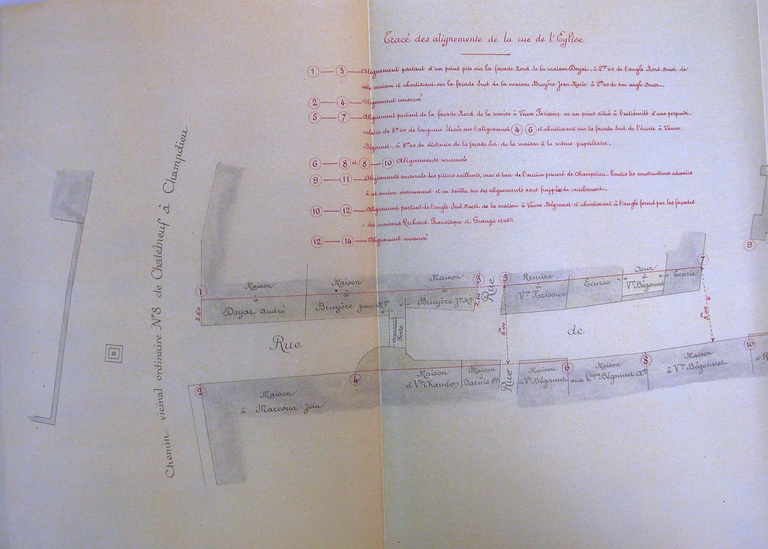 Tracé des alignements de la rue de l'Eglise
1 — 3 — Alignement partant d'un point pris sur la façade Nord de la maison Doyat, à 2m60 de l'angle Nord Ouest de
cette maison et aboutissant sur la façade Sud de la maison Bruyère Jean Marie à 2m20 de son angle Ouest.
2 — 4 — Alignement conservé
5 — 7 — Alignement partant de la façade Nord de la remise à Veuve Forissier en un point situé à l'extrémité d'une perpendi-
culaire de 8m00 de longueur élevée sur l'alignement 4 6 et aboutissant sur la façade Sud de l'écurie à Veuve
Bégonnet, à de distance de la façade Est de la maison à la même propriétaire.
6 — 8 et 8 — 10 Alignements conservés
9 — 11 — Alignements conservés des piliers saillants, murs et tour de l'ancien prieuré de Champdieu. Toutes les constructions adossées
à cet ancien monument et en saillie sur ces alignements sont frappées de reculement.
10 — 12 — Alignement partant de l'angle Sud Ouest de la maison à Veuve Bégonnet et aboutissant à l'angle formé par les façades
des maisons Richard Françoise et Grange
12 — 14 — Alignement conservé
Chemin vicinal ordinaire N°8 de Chatelneuf à Champdieu
1
Maison
à
Doyat André
Maison
à
Bruyère Jean Mie
Maison
à
Bruyère Jn Mie
3
Rue
5
Remise
à
Ve Forissier
Ecurie
Cour
à
Ve Bégonnet
Ecurie
7
9
Rue
de
2
Maison
à Marcoux Jean
4
Maison
à Ve Chambon
Maison
Rue
Maison
à Ve Bégonnet
6
Maison
8
Maison
à Ve Bégonnet
10